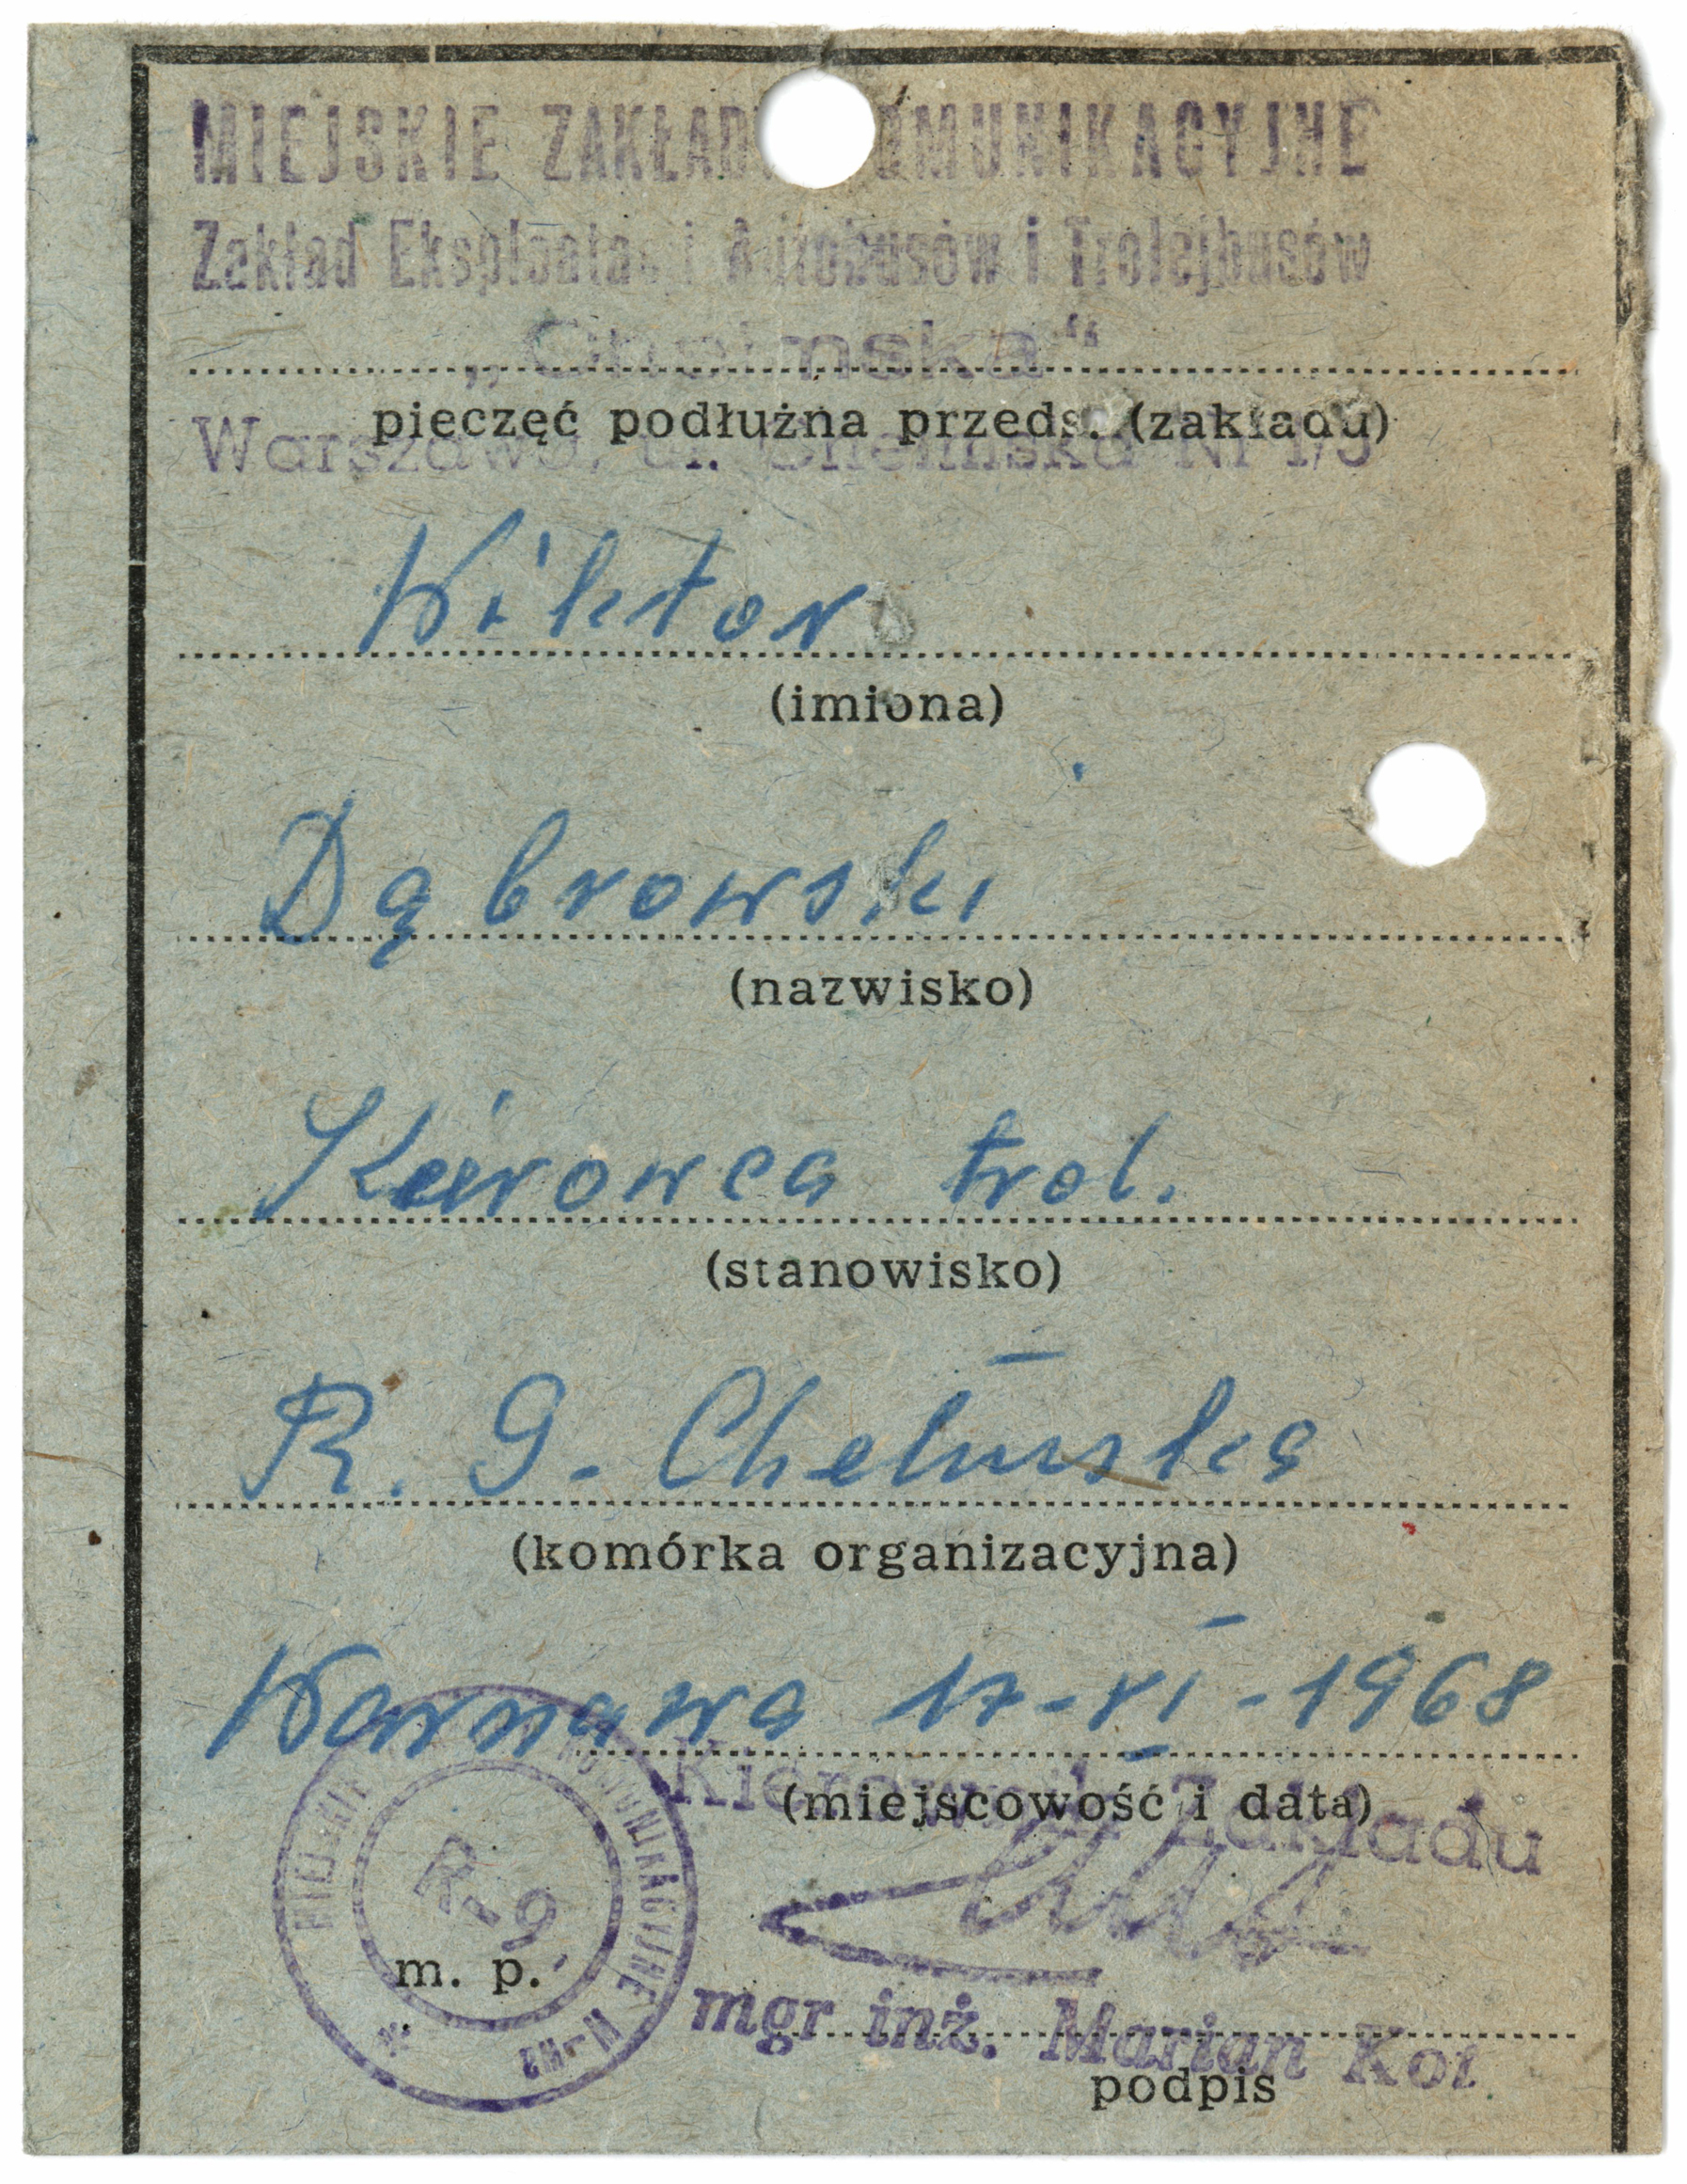 MIEJSKIE ZAKŁAD OMUNIKACYJNE
Zakład Eksploatacji Autobusów i Trolejbusów
„Chełmska"
pieczęć podłużna przeds. (zakładu)
Warszawa, ul. Chełmska Nr 1/3
Wiktor
(imiona)
Dąbrowski
(nazwisko)
Kierowca trol.
(stanowisko)
R. G. Chełmska
(komórka organizacyjna)
Warszawa 17-VI-1968
(miejscowość i data)
Kierownik Zakładu
MIEJSKIE KOMUNIKACYJNE W-wa
R-9
m. p.
mgr inż. Marian Kot
podpis